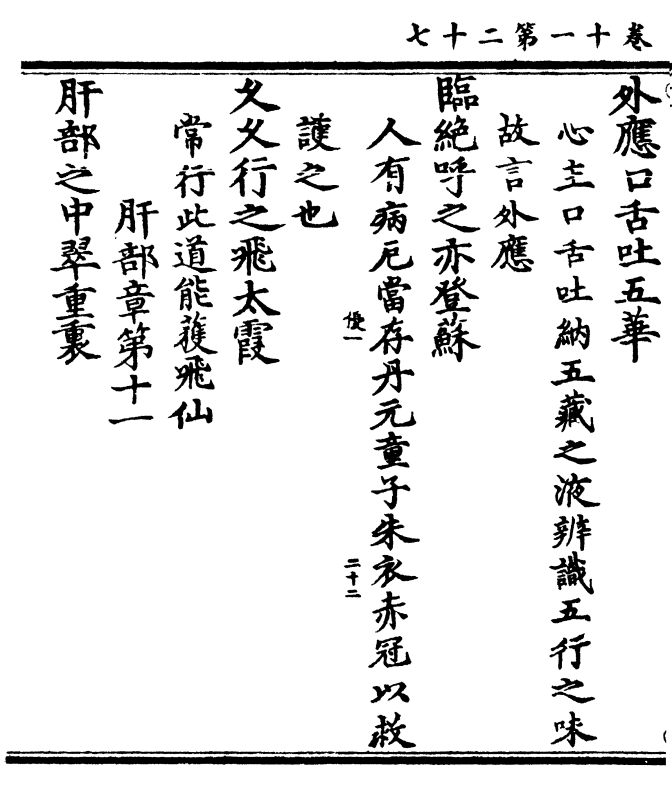 卷十一第二十七
外應口舌吐五華
心主口舌吐納五藏之液辨識五行之味
故言外應
臨絶呼之亦登蘇
人有病厄當存丹元童子朱衣赤冠以救
優一
二十二
護之也
久久行之飛太霞
常行此道能獲飛仙
肝部章第十一
肝部之中翠重裏